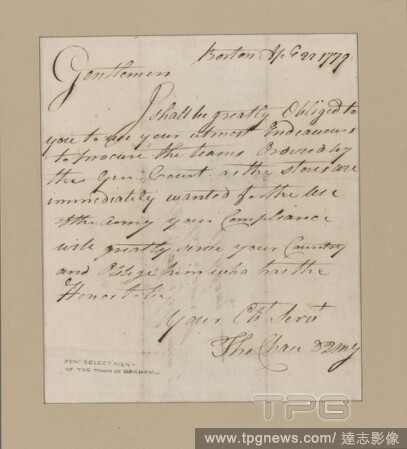 Boston Sep 22 1779
Gentlemen
I shall be greatly Obliged to
you to use your utmost Endeavours
to procure the teams Ordered by
the Genl Court as the stores are
immediately wanted for the use
of the army your Compliance
will greatly serve your Country
and Oblige him who has the
Honor to be
your Ob Servt
Tho Chase DQMG
HON: SELECT MEN-
OF THE TOWN OF OAKHAM-
TPG
www.tpgnews.com/達志影像